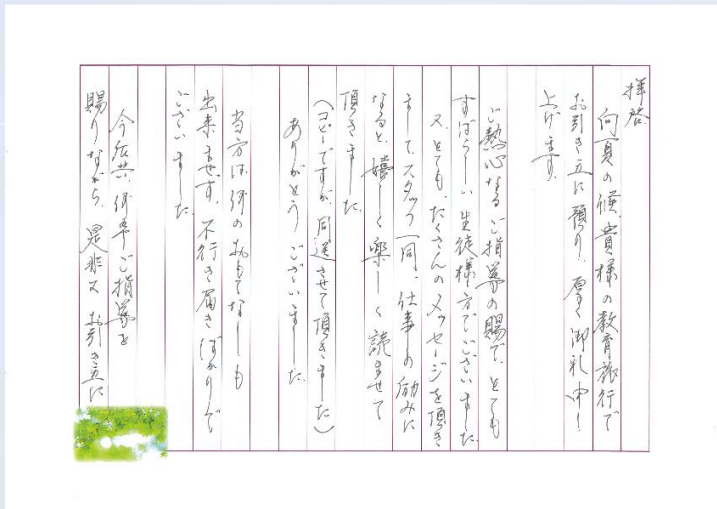 拝啓
向夏の候、貴様の教育旅行で
お引き立に預り、厚く御礼申し
上げます。
ご熱心なるご指導の賜で、とても
すばらしい生徒様方でございました。
又、とても、たくさんのメッセージを頂き
まして、スタッフ一同、仕事の励みに
なると、嬉しく楽しく読ませて
頂きました。
(コピーですが、同送させて頂きました)
ありがとうございいました。
当方は何のおもてなしも
出来ませず、不行き届きばかりで
ございました。
今后共、何卒ご指導を
賜りながら、是非又お引き立に